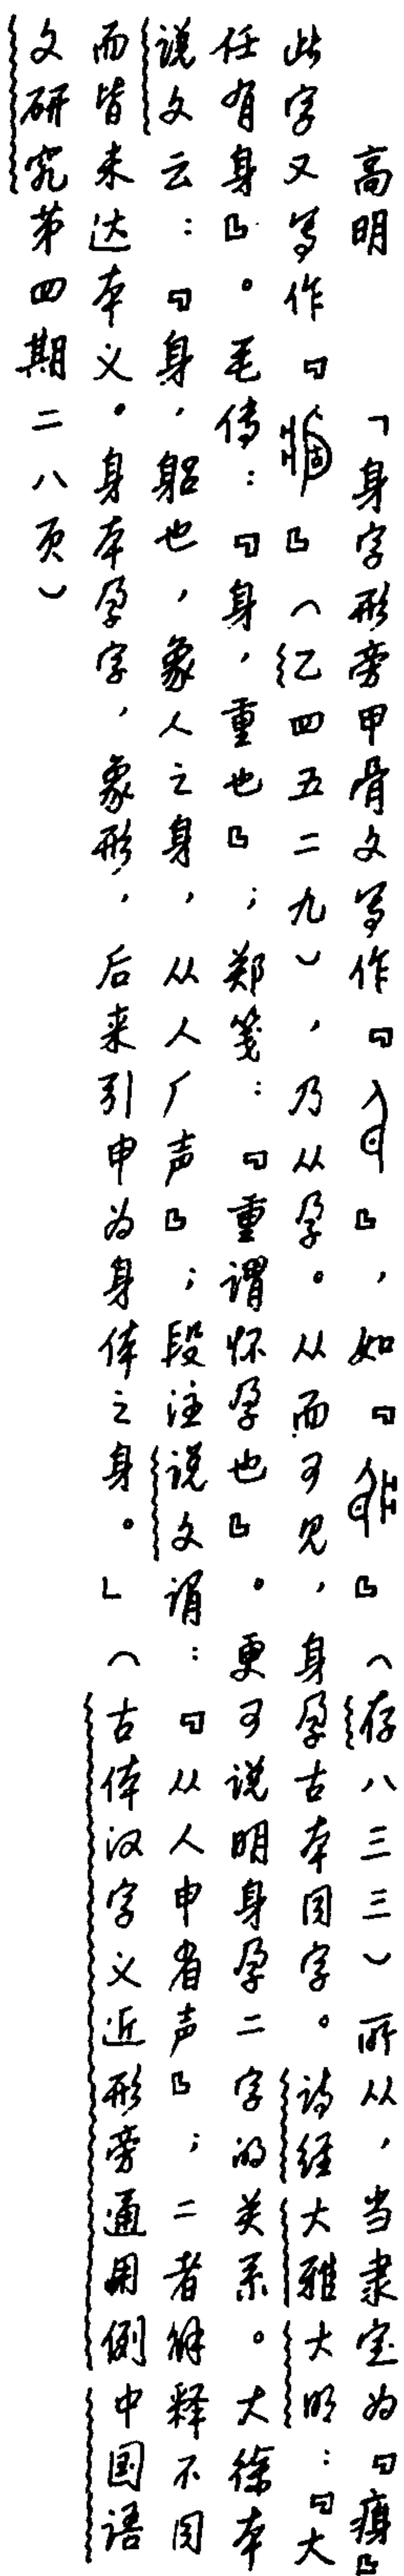 高明 「身字形旁甲骨文写作『』，如『』（存八三三）所从，当隶定为『㾕』
此字又写作『』（乙四五二九），乃从孕。从而可见，身孕古本同字。诗经大雅大明：『大
任有身』。毛传：『身，重也』；郑笺：『重谓怀孕也』。更可说明身孕二字的关系。大徐本
说文云：『身，躳也，象人之身，从人厂声』；段注说文谓：『从人申省声』；二者解释不同
而皆未达本义。身本孕字，象形，后来引申为身体之身。」（古体汉字义近形旁通用例 中国语
文研究第四期二八页）